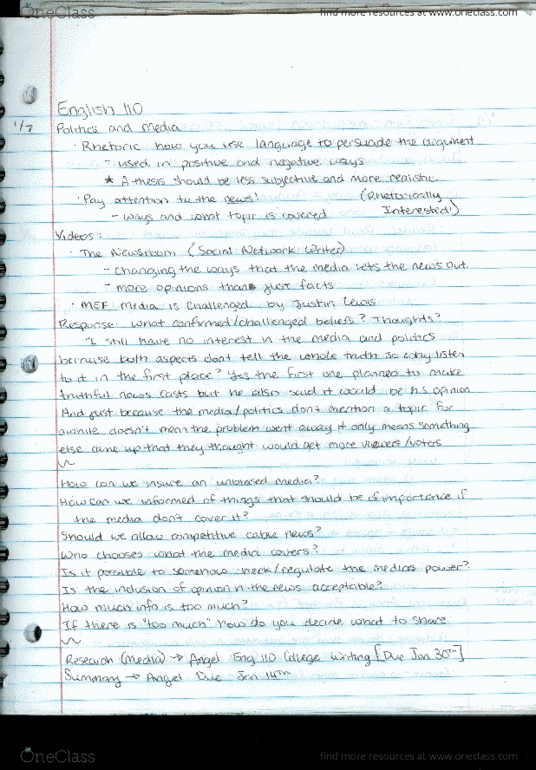 OneClass
find more resources at www.oneclass.com
English 110
1/7
Politics and Media
· Rhetoric how you use language to persuade the argument
- used in positive and negative ways
★ A thesis should be less subjective and more realistic
· Pay attention to the news! (Rhetorically
- ways and what topic is covered Interested!)
Videos:
· The Newsroom (Social Network Writer)
- changing the ways that the media lets the news out.
- more opinions than just facts
· MEF Media is Challenged by Justin Lewis
Response: What confirmed/challenged beliefs? Thoughts?
"I still have no interest in the media and politics
because both aspects dont tell the whole truth so why listen
to it in the first place? Yes the first one planned to make
truthful news casts but he also said it would be his opinion
And just because the media/politics don't mention a topic for
awhile doesn't mean the problem went away it only means something
else came up that they thought would get more viewers/voters
How can we insure an unbiased media?
How can we informed of things that should be of importance if
the media don't cover it?
Should we allow competitive cable news?
Who chooses what the media covers?
Is it possible to somehow check/regulate the medias power?
Is the inclusion of opinion n the news acceptable?
How much info is too much?
If there is "too much" how do you decide what to share
Research (Media) → Angel Eng 110 College Writing [Due Jan 30th]
Summary → Angel Due Jan 14th
OneClass
find more resources at www.oneclass.com